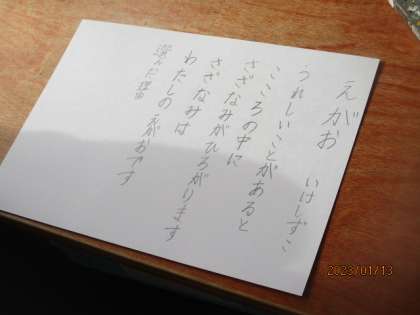 えがお
いけしずこ
うれしいことがあると
こころの中に
さざなみがひろがります
さざなみは
わたしの えがおです
選んだ理由
2023/01/13